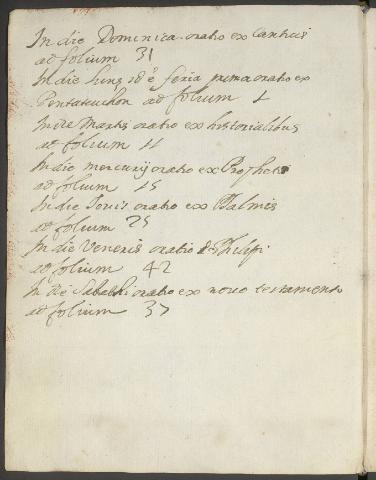 In die Dominica oratio ex Canticis
ad folium 31
In die Lunę id ē feria prima oratio ex
Pentateuchon ad folium 1
In die Martis oratio ex historialibus
ad folium 11
In die mercurij oratio ex Prophetis
ad folium 15
In die Jovis oratio ex Psalmis
ad folium 25
In die Veneris oratio
ad folium 42
In die Sabathi oratio ex novo testamento
ad folium 37